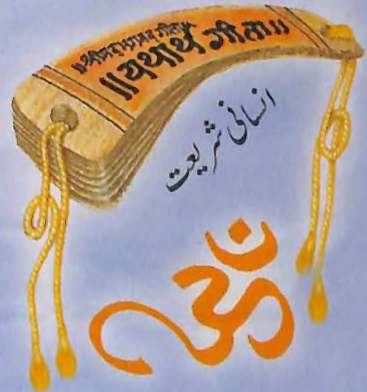 ॥श्रीमद्भगवद्गीता॥
॥यथार्थ गीता॥
انسانی شریعت
ॐ